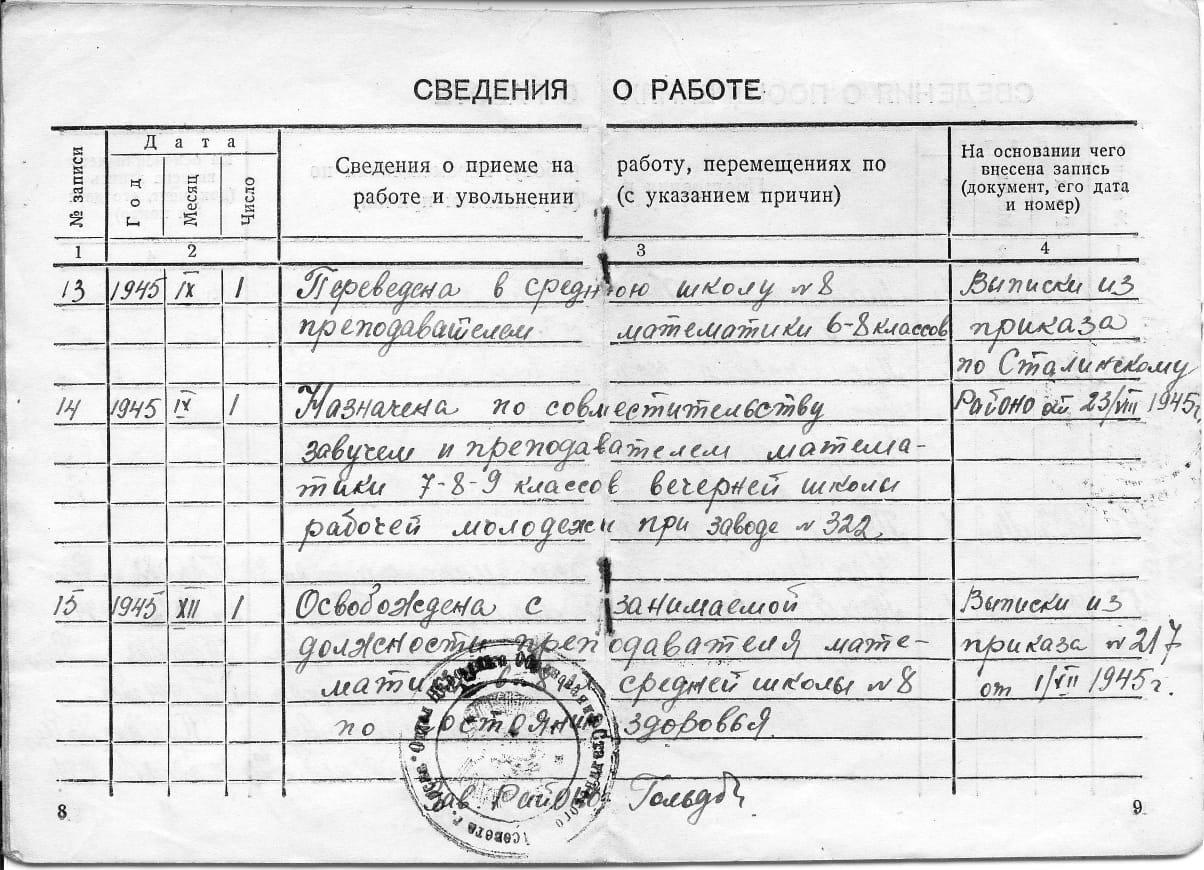 СВЕДЕНИЯ О РАБОТЕ
№ записи
Дата
Год
Месяц
Число
Сведения о приеме на работу, перемещениях по
работе и увольнении (с указанием причин)
На основании чего
внесена запись
(документ, его дата
и номер)
1 2 3 4
13 1945 IX 1 Переведена в среднюю школу №8 Выписки из
преподавателем математики 6-8 классов приказа
по Сталинскому
14 1945 IX 1 Назначена по совместительству Районо от 23/VIII 1945г.
завучем и преподавателем матема-
тики 7-8-9 классов вечерней школы
рабочей молодежи при заводе №322
15 1945 XII 1 Освобождена с занимаемой Выписки из
должности преподавателя мате- приказа №217
мати средней школы №8 от 1/XII 1945г.
по состоянию здоровья.
Зав Районо
8
9